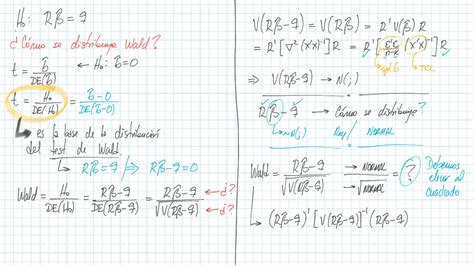 H₀: Rβ = q
¿Cómo se distribuye Wald?
t = b̂ / DE(b̂) ← H₀: b = 0
t = H₀ / DE(H₀) = (b̂ - 0) / DE(b̂ - 0)
es la base de la distribución
del test de Wald.
Rβ = q / Rβ - q = 0
Wald = H₀ / DE(H₀) = (Rβ - q) / DE(Rβ - q) = (Rβ - q) / √V(Rβ - q) ← ¿? ← ¿?
V(Rβ - q) = V(Rβ) = R' V(β) R
= R' [σ² (X'X)⁻¹] R = R' [ε'ε / n-k (X'X)⁻¹] R
TCL
⇒ V(Rβ - q) → N(;)
Rβ - q → Cómo se distribuye?
N(;) NORMAL
Wald = (Rβ - q) / √V(Rβ - q) → NORMAL / √NORMAL = ? Debemos elevar al cuadrado
(Rβ - q)' [V(Rβ - q)]⁻¹ (Rβ - q)